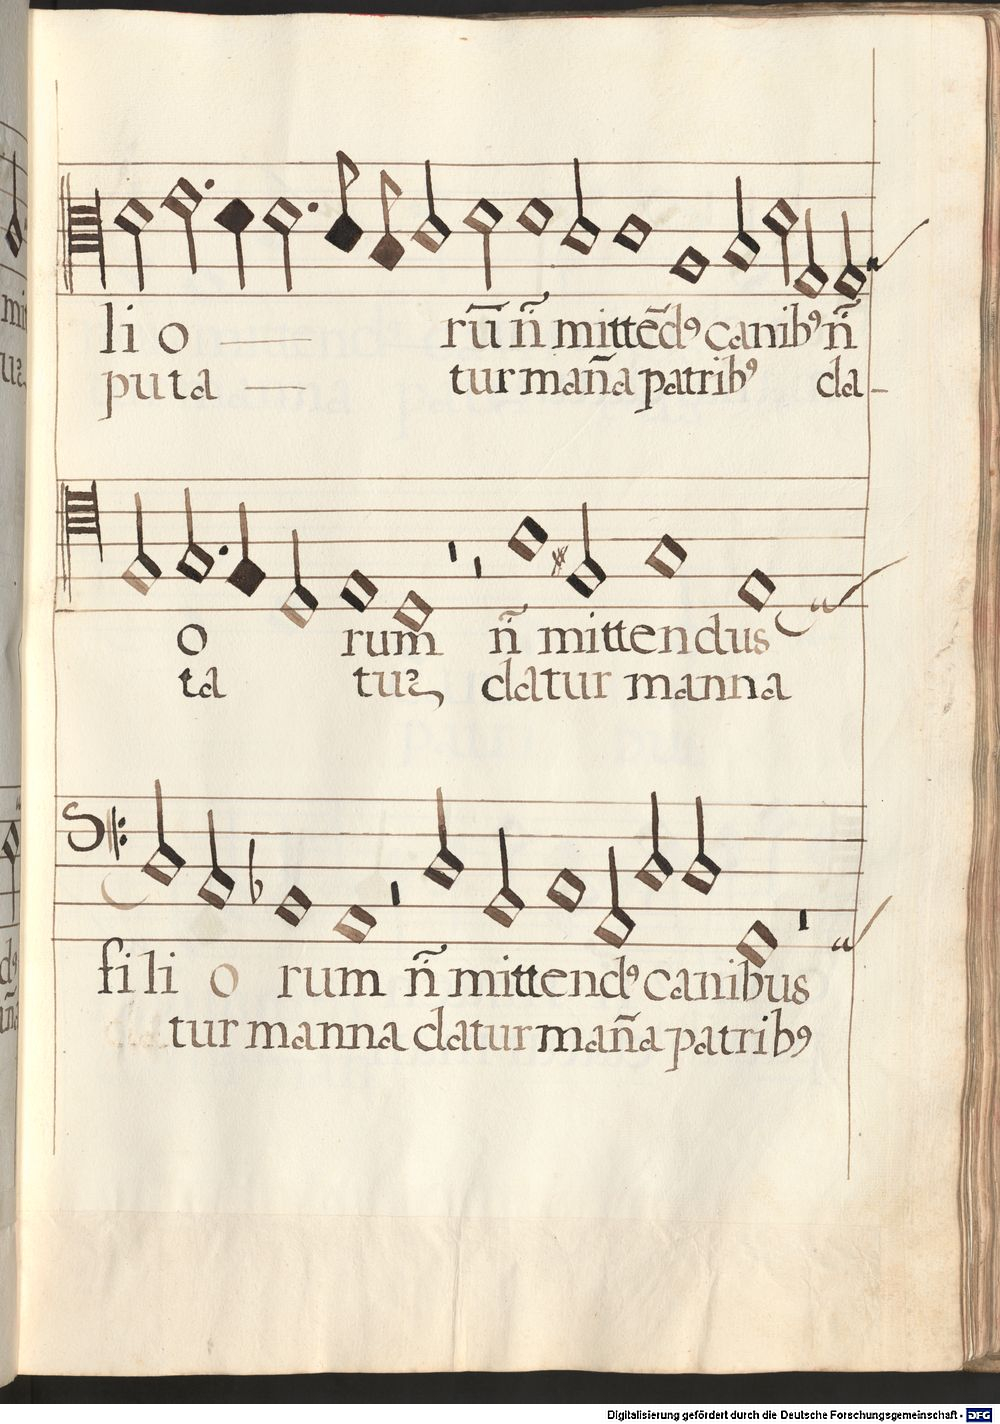 li o rū ñ mittēdꝰ canibꝰ ñ
puta tur maña patribꝰ da-
o rum ñ mittendus
ta tur datur manna
fili o rum ñ mittendꝰ canibus
da tur manna datur maña patribꝰ
Digitalisierung gefördert durch die Deutsche Forschungsgemeinschaft - DFG